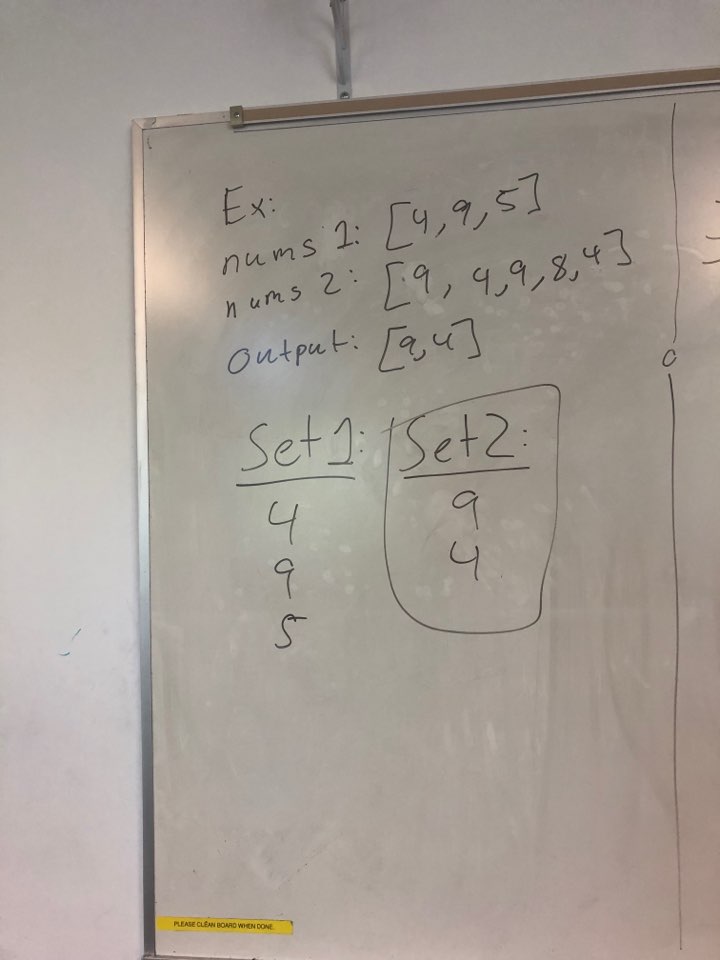 Ex:
nums 1: [4, 9, 5]
nums 2: [9, 4, 9, 8, 4]
output: [9, 4]
Set 1: Set 2:
4 9
9 4
5
PLEASE CLEAN BOARD WHEN DONE.